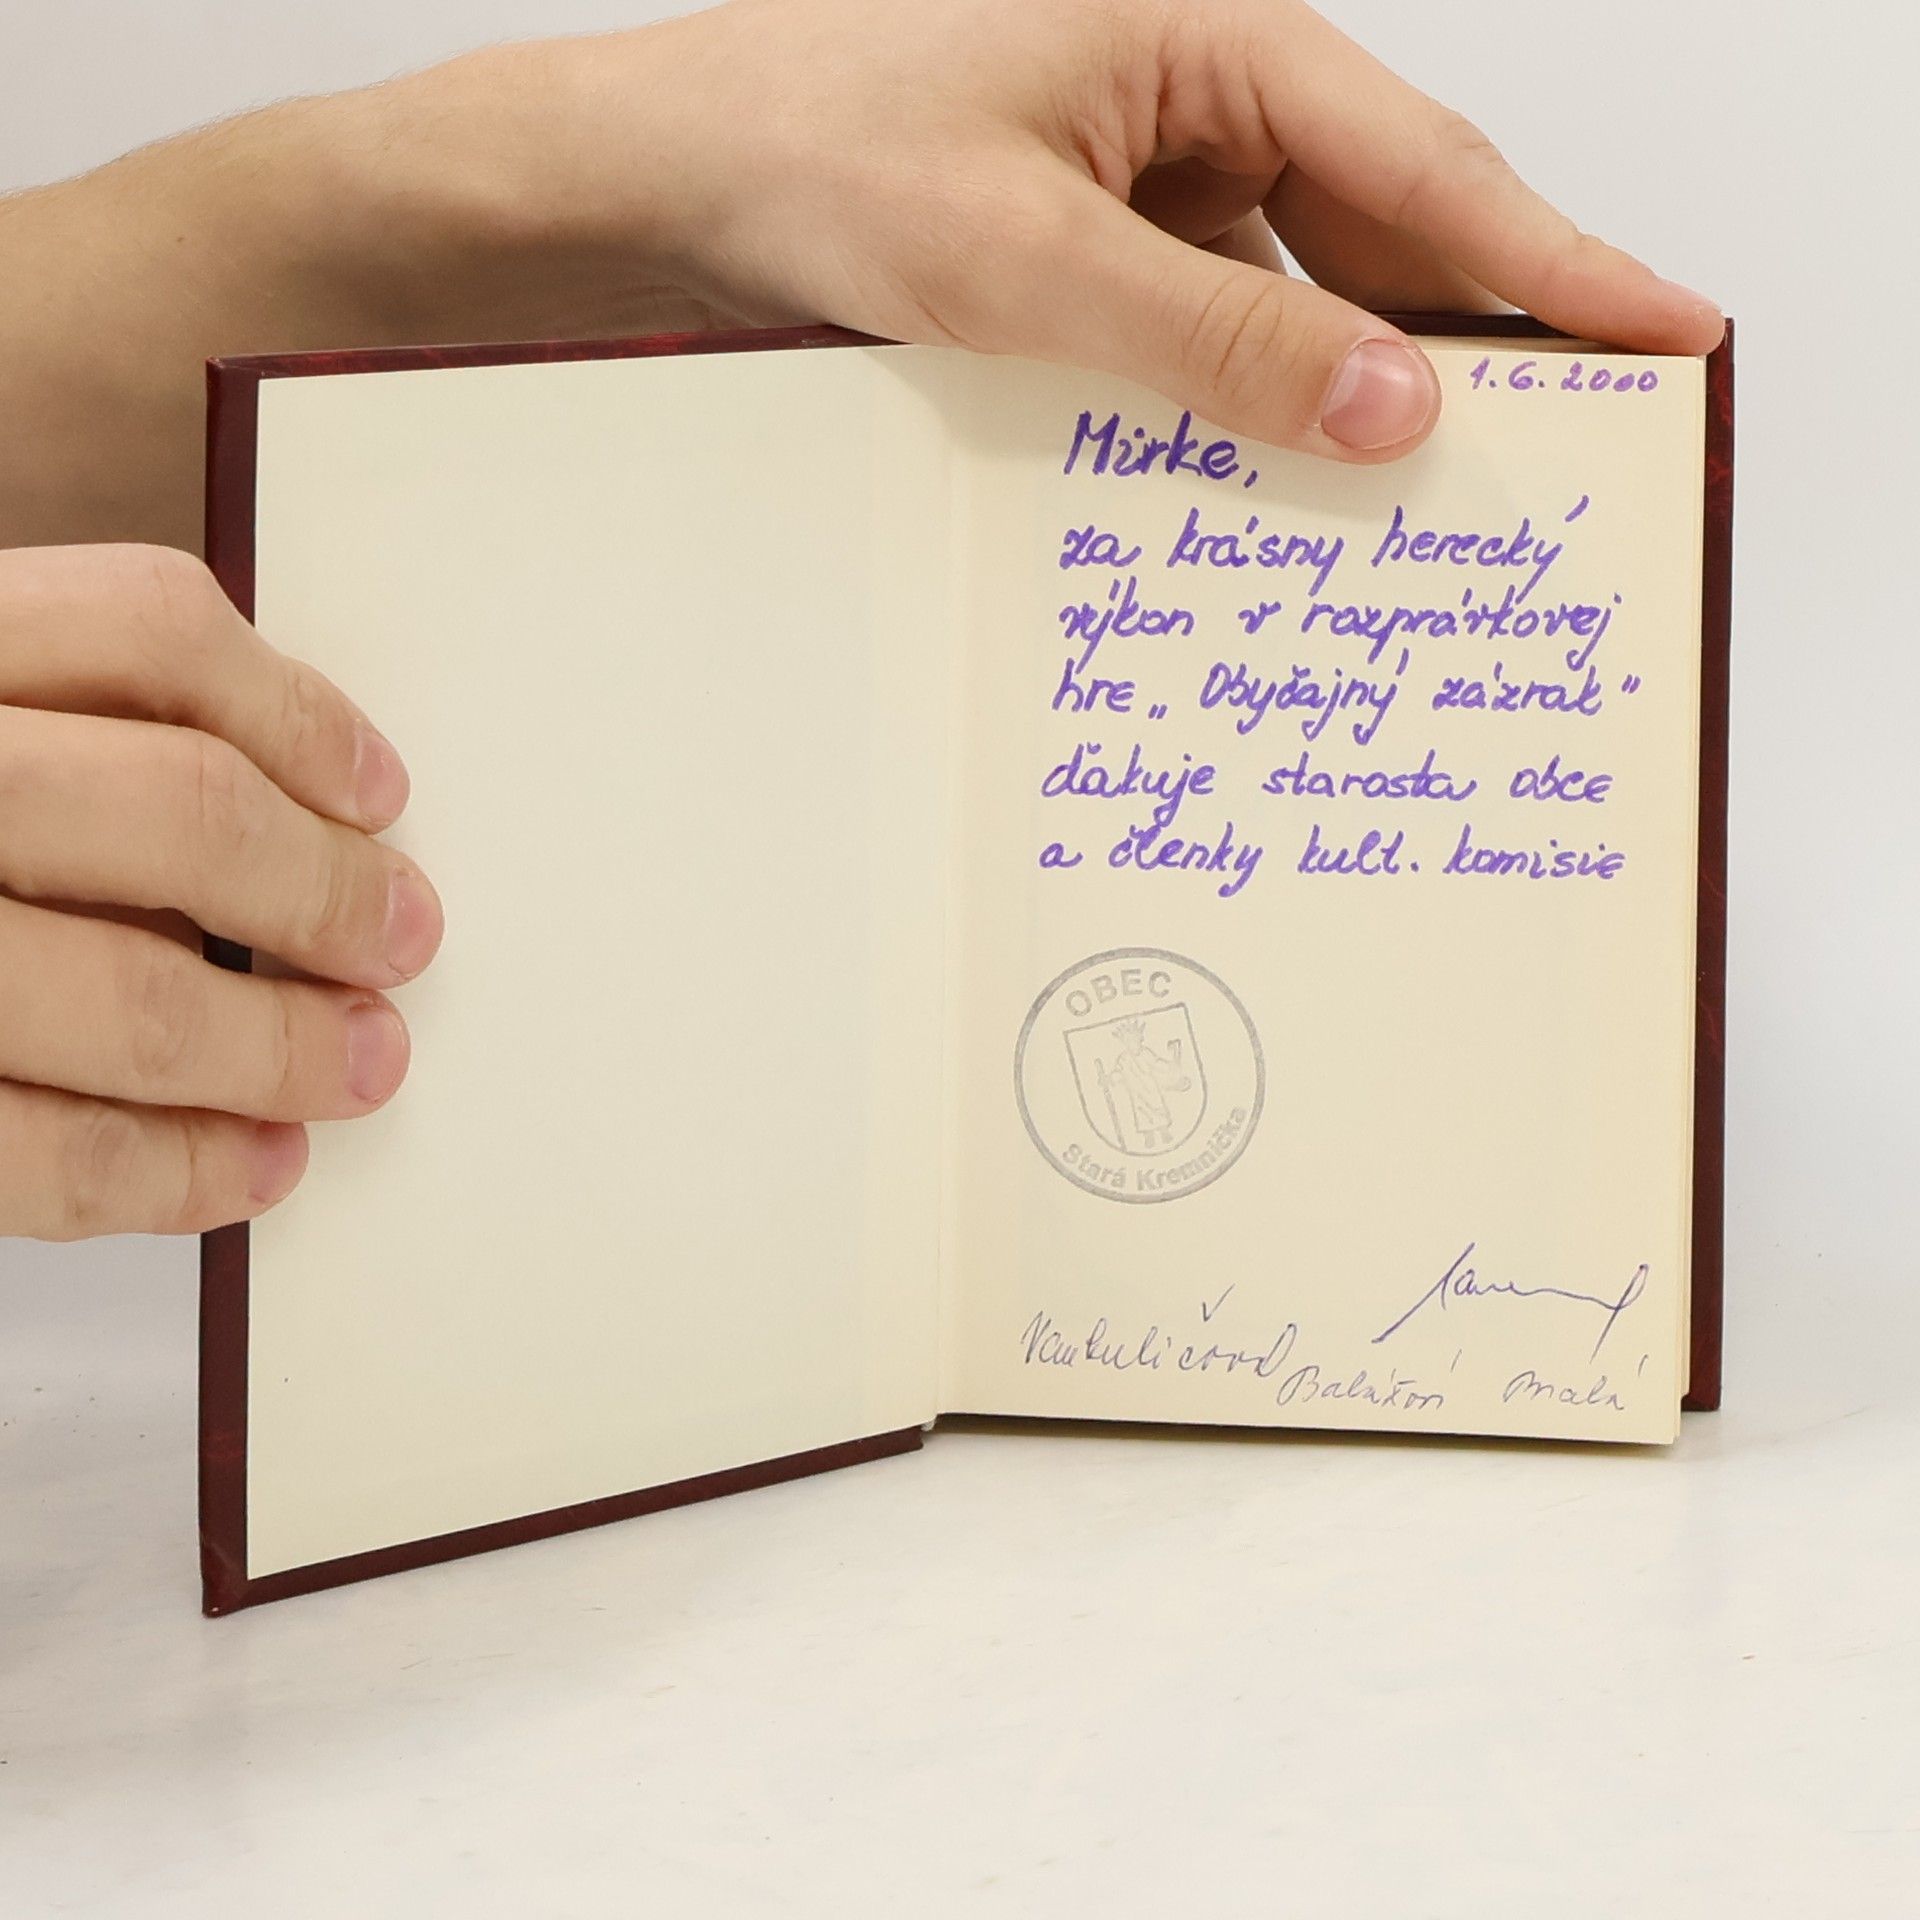 1.6.2000
Mirke,
za krásny herecký
výkon v rozprávkovej
hre „Obyčajný zázrak"
ďakuje starosta obce
a členky kult. komisie
OBEC
Stará Kremnička
Malá